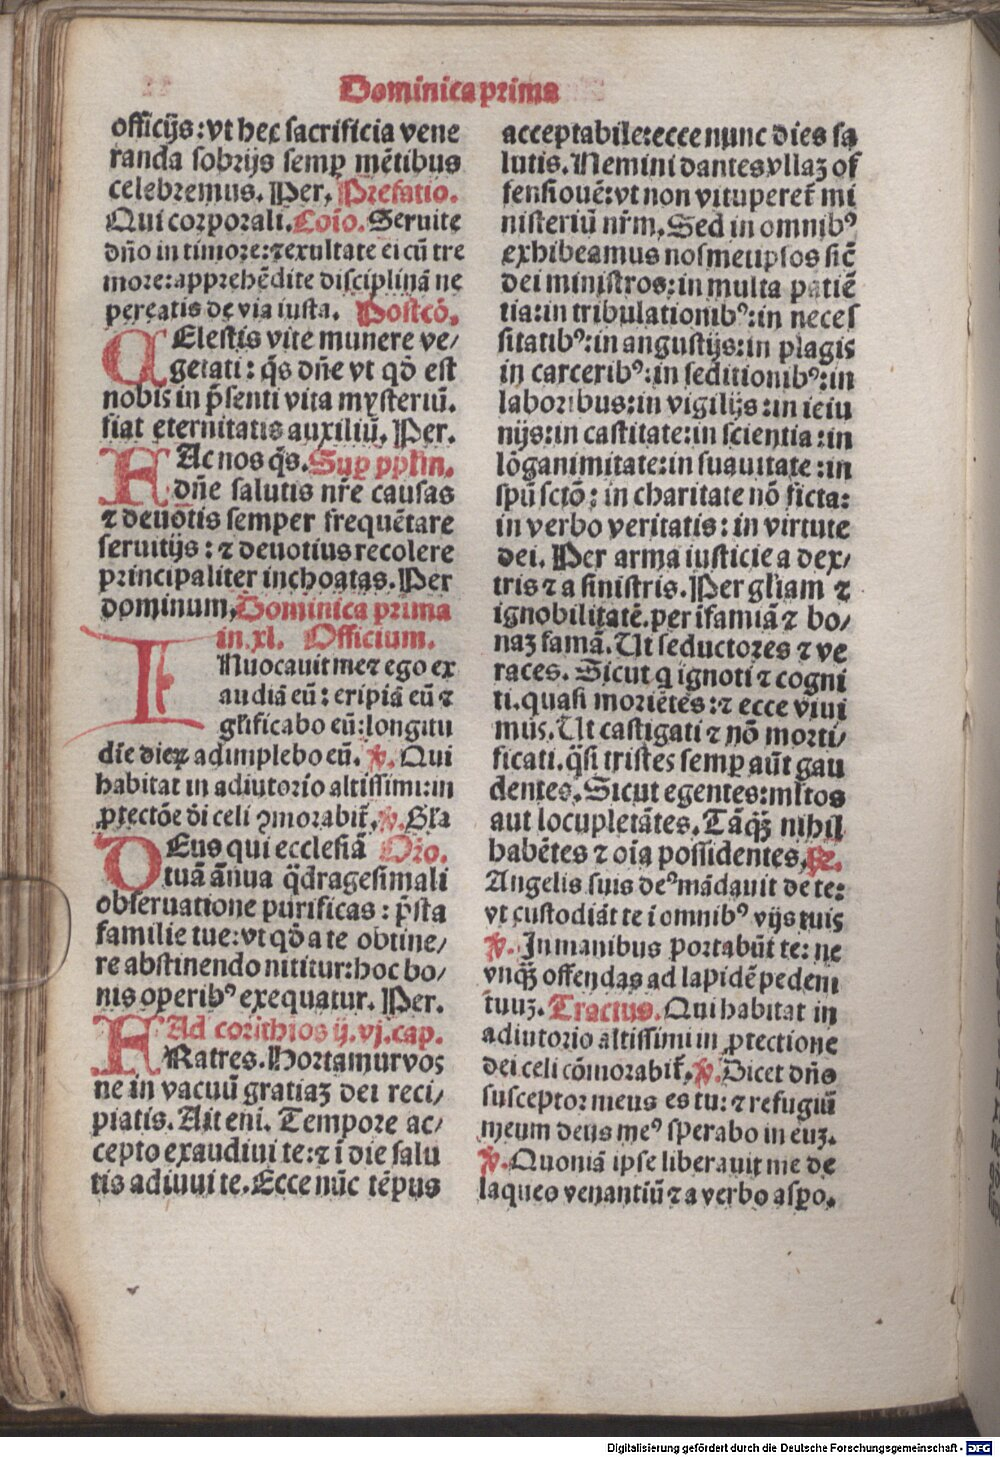 Dominica prima
officijs: vt hec sacrificia vene
randa sobrijs semꝑ mētibus
celebremus. Per. Prefatio.
Qui corporali. Coīo. Seruite
dño in timore: ⁊ exultate ei cū tre
more: apprehēdite disciplinā ne
pereatis de via iusta. Postcō.
CElestis vite munere ve/
getati: q̄s dñe vt qđ est
nobis in p̄senti vita mysteriū.
fiat eternitatis auxiliū. Per.
FAc nos q̄s. Suꝑ pplm̄.
dñe salutis nr̄e causas
⁊ deuotis semper frequētare
seruitijs: ⁊ deuotius recolere
principaliter inchoatas. Per
dominum. Dominica prima
in .xl. Officium.
INuocauit me ⁊ ego ex
audiā eū: eripiā eū ⁊
gl̄ificabo eū: longitu
dīe dieꝝ adimplebo eū. ℣. Qui
habitat in adiutorio altissimi: in
ꝓtectōe dei celi ꝯmorabit̄. ℣. Gl̄a
DEus qui ecclesiā Oīo.
tuā ānua q̄dragesimali
obseruatione purificas: p̄sta
familie tue: vt qđ a te obtine/
re abstinendo nititur: hoc bo/
nis operibꝰ exequatur. Per.
Ad corithios ij. vj. cap.
FRatres. Hortamur vos
ne in vacuū gratiaꝫ dei reci/
piatis. Ait eni. Tempore ac/
cepto exaudiui te: ⁊ ī die salu
tis adiuui te. Ecce nūc tēpus
acceptabile: ecce nunc dies sa
lutis. Nemini dantes vllaꝫ of
fensionē: vt non vituperet̄ mi
nisteriū nr̄m. Sed in omnibꝰ
exhibeamus nosmetipsos sic̄
dei ministros: in multa patiē
tia: in tribulationibꝰ: in neces
sitatibꝰ: in angustijs: in plagis
in carceribꝰ: in seditionibꝰ: in
laboribus: in vigilijs: in ieiu
nijs: in castitate: in scientia: in
lōganimitate: in suauitate: in
spū sctō: in charitate nō ficta:
in verbo veritatis: in virtute
dei. Per arma iusticie a dex/
tris ⁊ a sinistris. Per gl̄iam ⁊
ignobilitatē. per ifamiā ⁊ bo/
naꝫ famā. Ut seductores ⁊ ve
races. Sicut q ignoti ⁊ cogni
ti. quasi moriētes: ⁊ ecce viui
mus. Ut castigati ⁊ nō morti/
ficati. q̄si tristes semꝑ aūt gau
dentes. Sicut egentes: ml̄tos
aut locupletātes. Tāq̄ꝫ nihil
habētes ⁊ oīa possidentes. ℟.
Angelis suis deꝰ mādauit de te:
vt custodiāt te ī omnibꝰ vijs tuis
℣. In manibus portabūt te: ne
vnq̄ꝫ offendas ad lapidē pedem
tuuꝫ. Tractus. Qui habitat in
adiutorio altissimi in ꝓtectione
dei celi cōmorabit̄. ℣. Dicet dño
susceptor meus es tu: ⁊ refugiū
meum deus meꝰ sperabo in euꝫ.
℣. Quoniā ipse liberauit me de
laqueo venantiū ⁊ a verbo aspo.
Digitalisierung gefördert durch die Deutsche Forschungsgemeinschaft - DFG